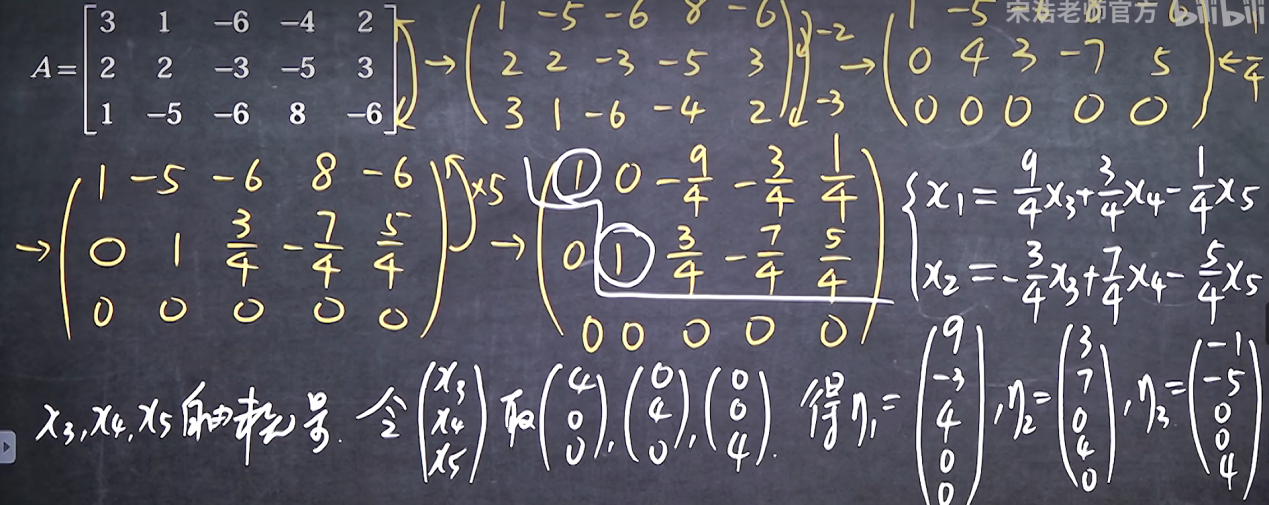 A= [3 1 -6 -4 2; 2 2 -3 -5 3; 1 -5 -6 8 -6] → (1 -5 -6 8 -6; 2 2 -3 -5 3; 3 1 -6 -4 2) -2 -3 → (1 -5 -6 8 -6; 0 4 3 -7 5; 0 0 0 0 0) ← 1/4
宋浩老师官方 bilibili
→ (1 -5 -6 8 -6; 0 1 3/4 -7/4 5/4; 0 0 0 0 0) ×5 → (1 0 -9/4 -3/4 1/4; 0 1 3/4 -7/4 5/4; 0 0 0 0 0) { x₁ = 9/4x₃+3/4x₄-1/4x₅
x₂ = -3/4x₃+7/4x₄-5/4x₅
x₃,x₄,x₅自由未知量. 令(x₃ x₄ x₅) 取(4 0 0),(0 4 0),(0 0 4). 得η₁=(9 -3 4 0 0),η₂=(3 7 0 4 0),η₃=(-1 -5 0 0 4)